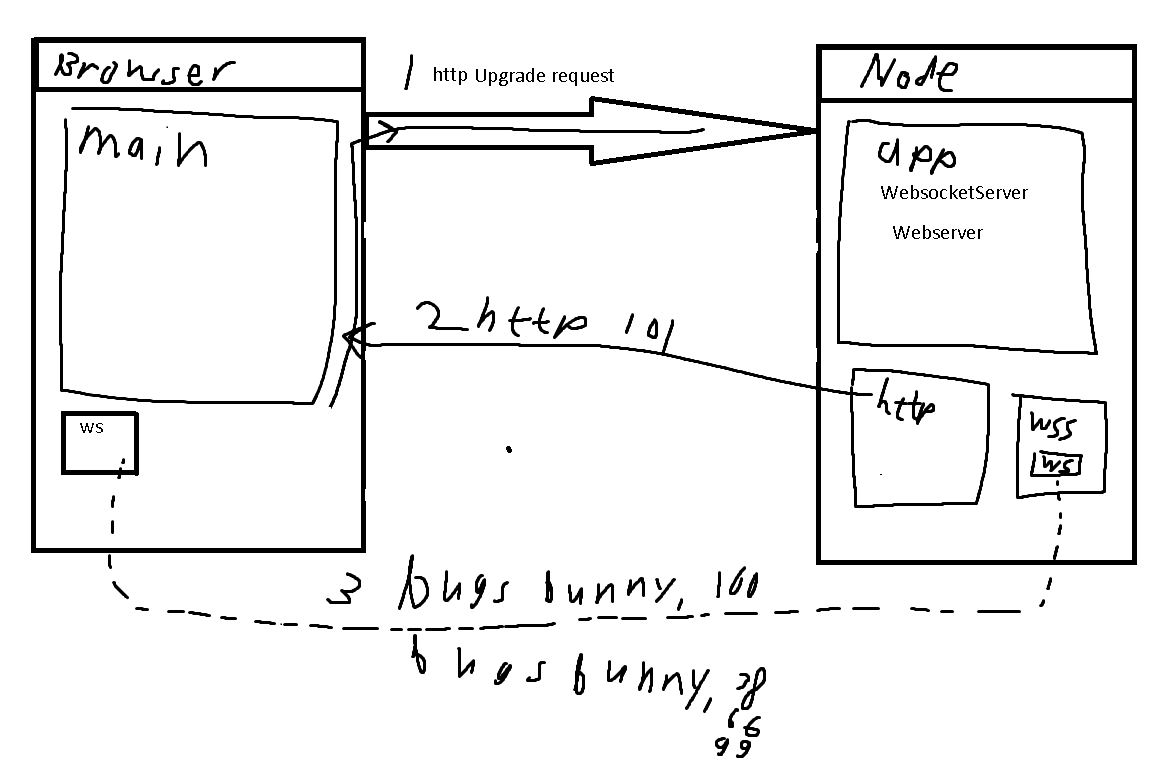 Browser
1 http Upgrade request
Node
main
app
WebsocketServer
Webserver
2 http 101
http
ws
wss
ws
3 bugs bunny, 100
bugs bunny, 38
66
99